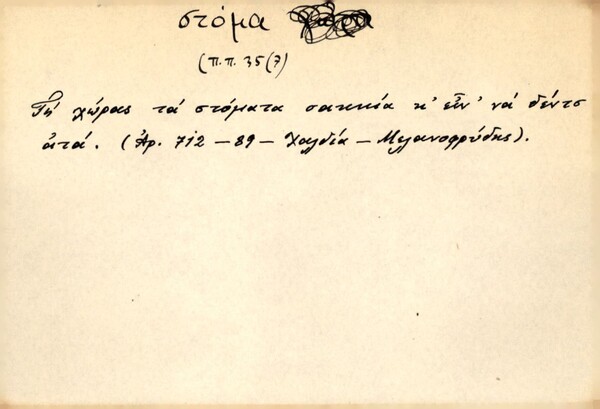 στόμα
(π.π. 35(7)
Τῆ χώρας τά στόματα σακκία κ' εἶν' νά δέντς
ἀτά. (Ἀρ. 712 – 89 – Χαλδία – Μελανοφρύδης).